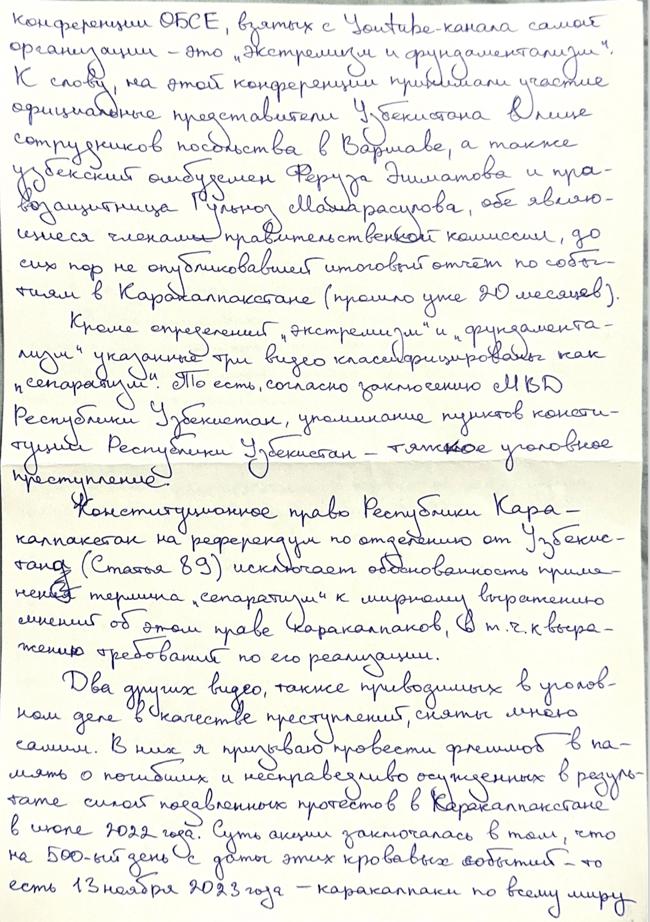 конференции ОБСЕ, взятых с Youtube-канала самой
организации – это „экстремизм и фундаментализм“.
К слову, на этой конференции принимали участие
официальные представители Узбекистана в лице
сотрудников посольства в Варшаве, а также
узбекский омбудсмен Феруза Эшматова и пра-
возащитница Гульноз Машарасулова, обе являю-
щиеся членами правительственной комиссии, до
сих пор не опубликовавшей итоговый отчёт по собы-
тиям в Каракалпакстане (прошло уже 20 месяцев).
Кроме определений „экстремизм“ и „фундамента-
лизм“ указанные три видео классифицированы как
„сепаратизм“. То есть, согласно заключению МВД
Республики Узбекистан, упоминание пунктов консти-
туции Республики Узбекистан – тяжкое уголовное
преступление.
Конституционное право Республики Кара-
калпакстан на референдум по отделению от Узбекис-
тана (Статья 89) исключает обоснованность приме-
нения термина „сепаратизм“ к мирному выражению
мнений об этом праве каракалпаков, в т.ч. к выра-
жению требований по его реализации.
Два других видео, также приводимых в уголов-
ном деле в качестве преступлений, сняты мною
самим. В них я призываю провести флешмоб в па-
мять о погибших и несправедливо осужденных в резуль-
тате силой подавленных протестов в Каракалпакстане
в июле 2022 года. Суть акции заключалась в том, что
на 500-ый день с даты этих кровавых событий – то
есть 13 ноября 2023 года – каракалпаки по всему миру